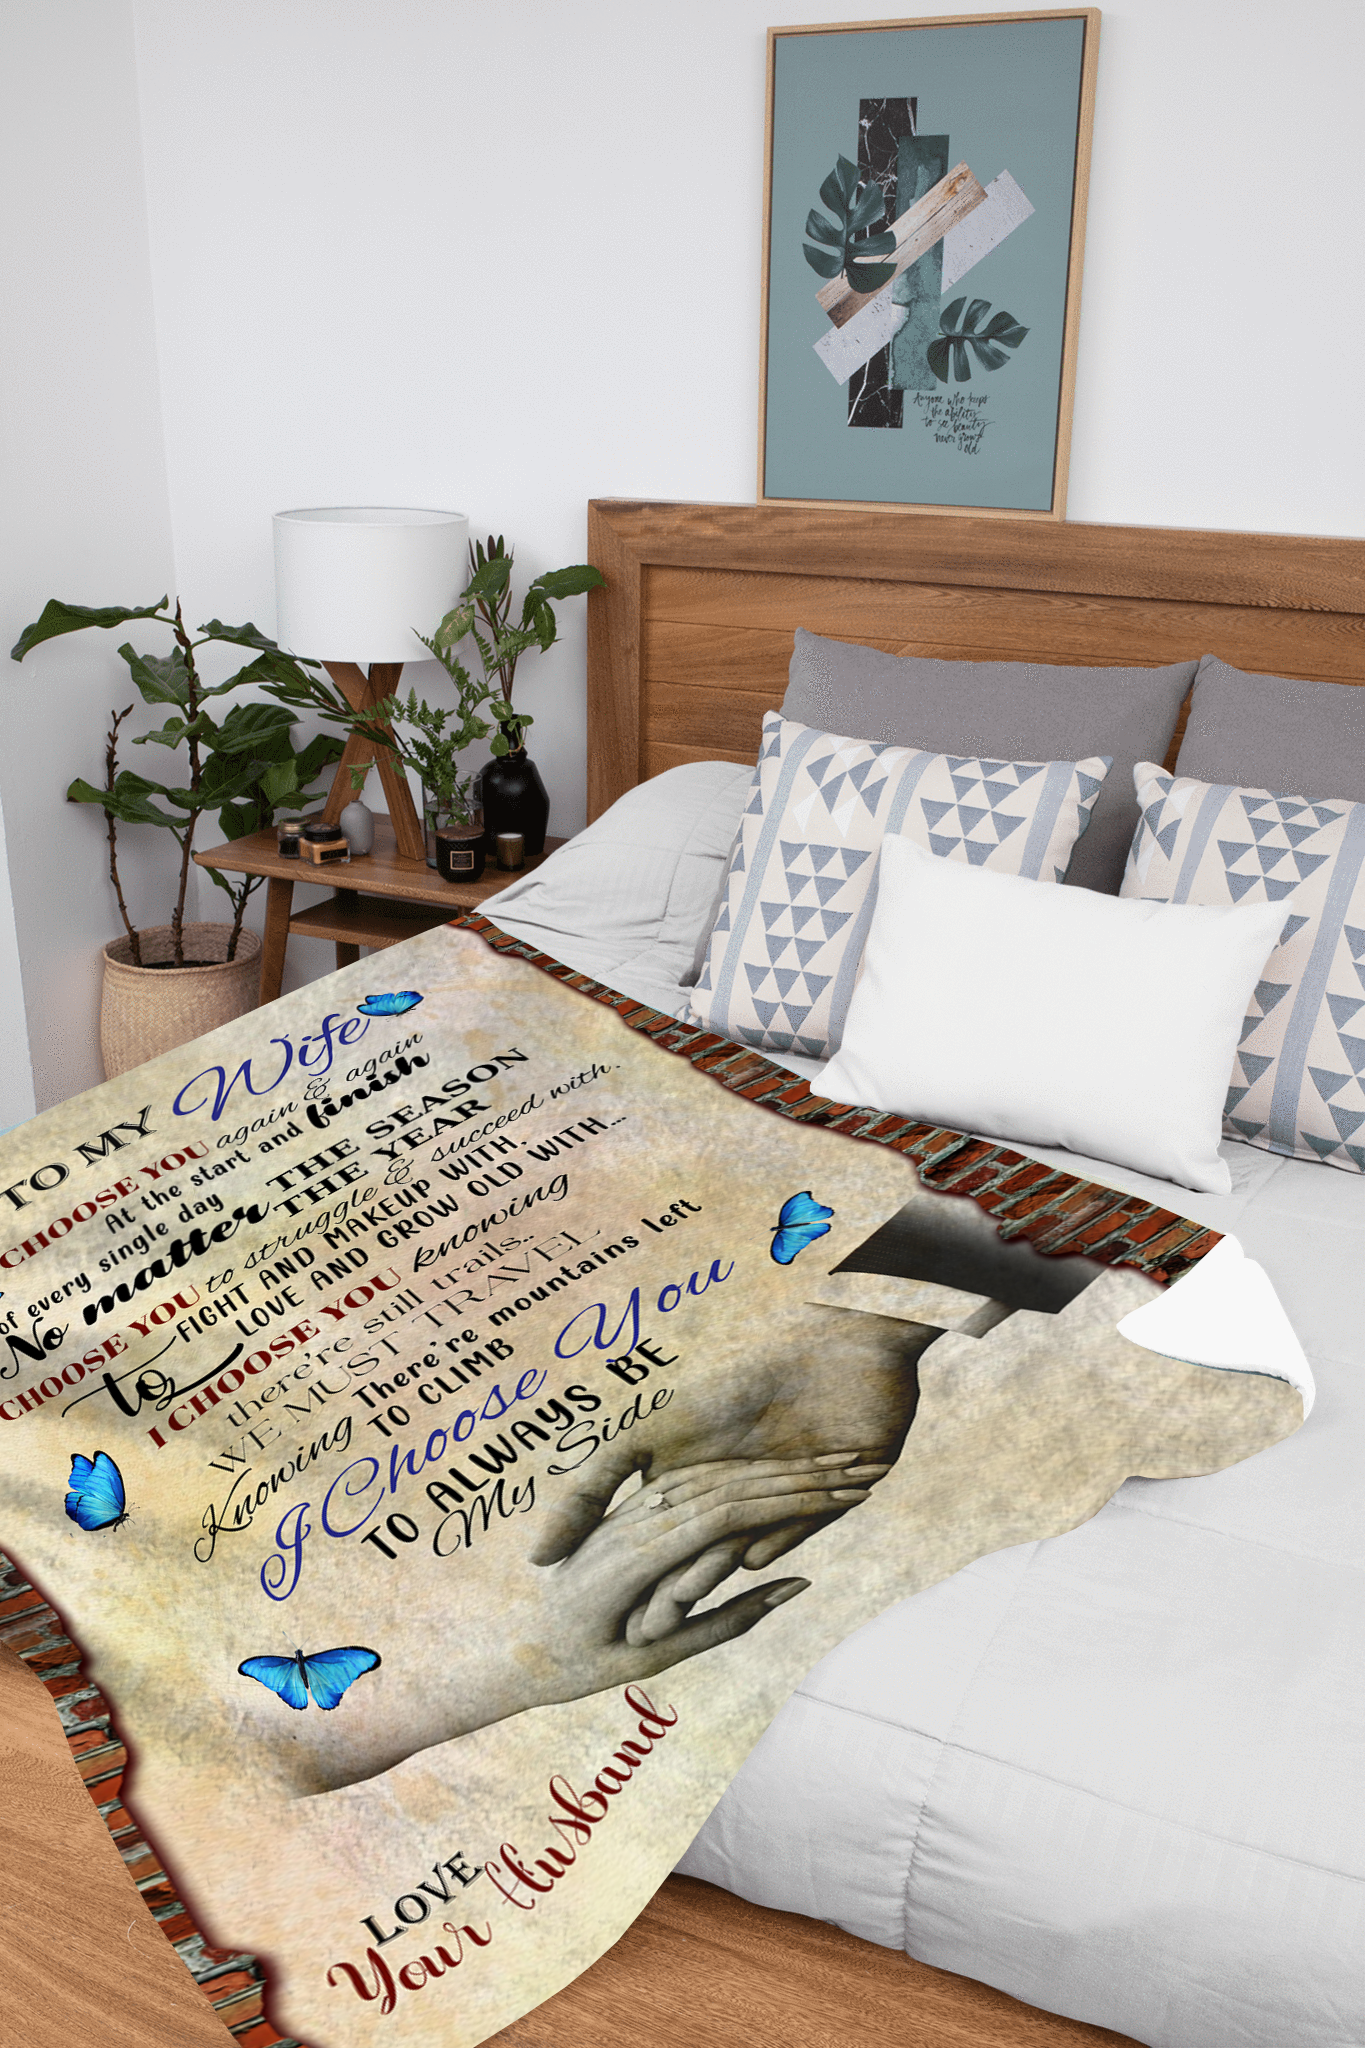 Anyone who keeps
the ability
to see beauty
never grows
old
TO MY Wife
CHOOSE YOU again & again
At the start and finish
of every single day
No matter THE SEASON
THE YEAR
CHOOSE YOU to struggle & succeed with.
to FIGHT AND MAKEUP WITH.
LOVE AND GROW OLD WITH...
I CHOOSE YOU knowing
there're still trails..
WE MUST TRAVEL
Knowing There're mountains left
TO CLIMB
I Choose You
TO ALWAYS BE
My Side
LOVE
Your Husband